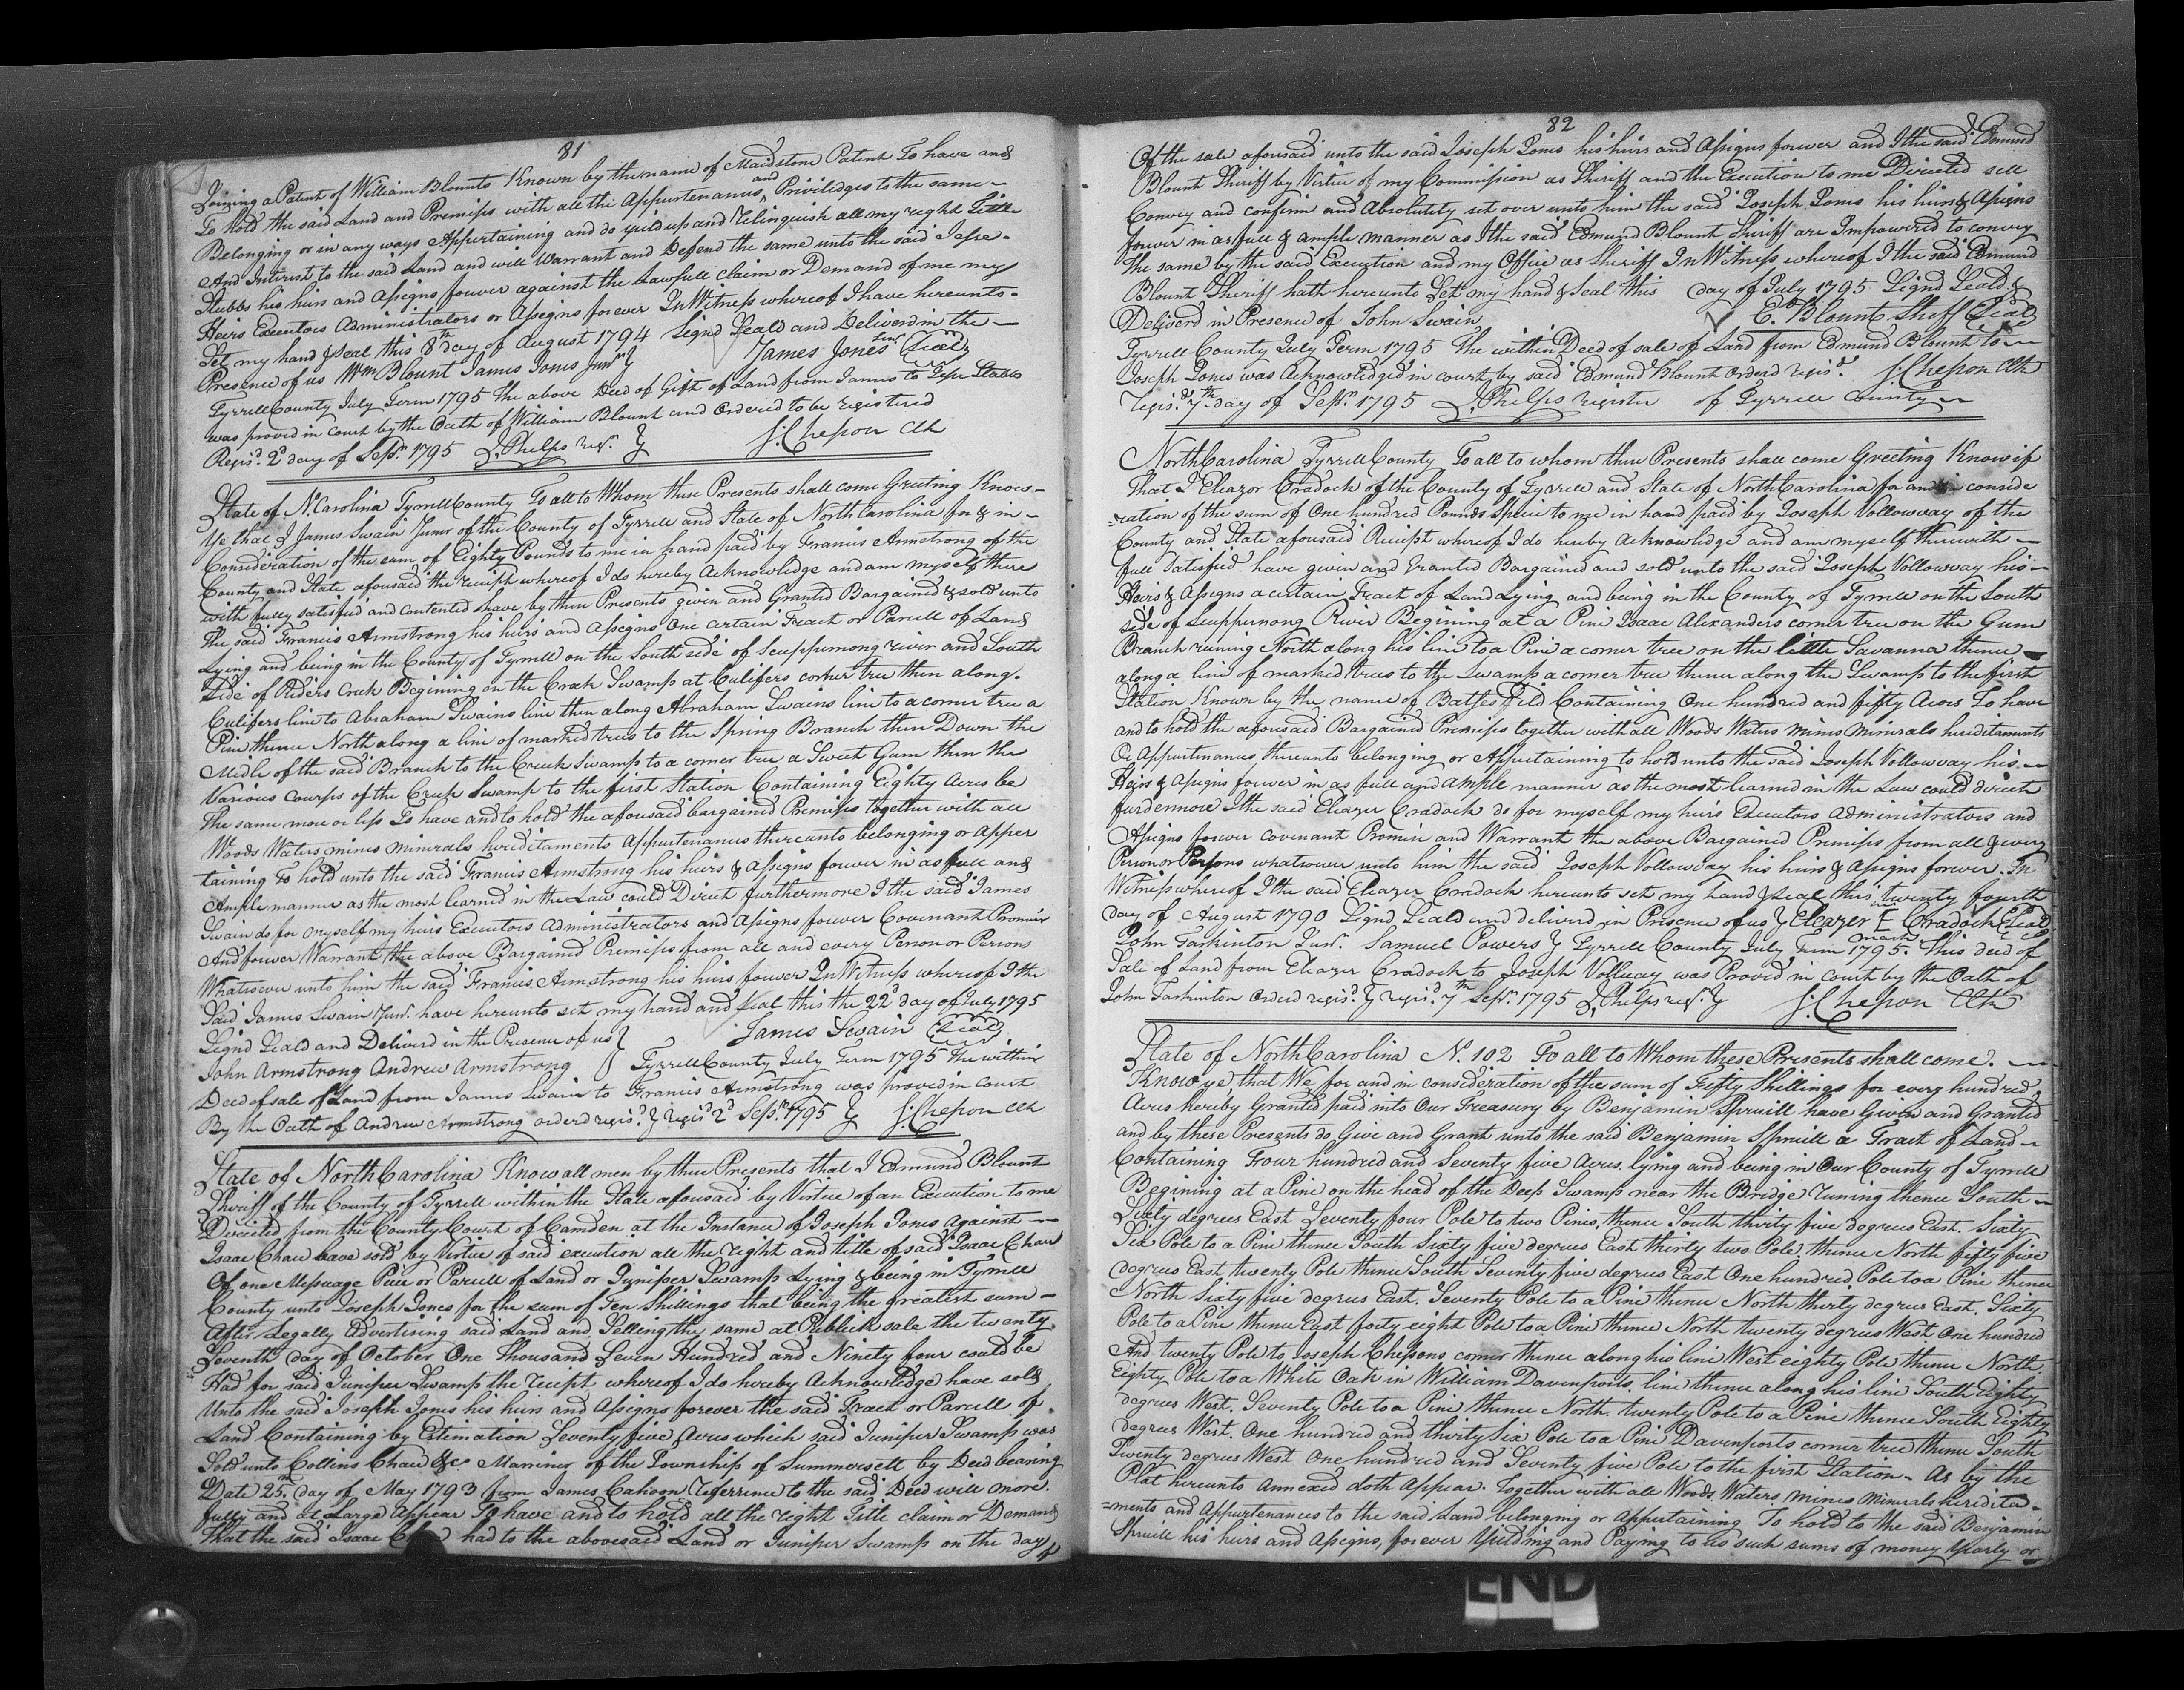 81
Joining a Patent of William Blounts Known by the name of Maidstone Patent To have and
To hold the said Land and Premises with all the Appurtenances and Priviledges to the same
Belonging or in any ways Appertaining and do yeild up and Relinquish all my right Tittle
And Intrust to the said Land and will Warrant and Defend the same unto the said Jesse
Stubbs his heirs and Assigns forever against the Lawfull claim or Demand of me my
Heirs Executors Administrators or Assigns forever In Witness whereof I have hereunto
Set my hand & Seal this 8th day of August 1794 Signd Seald and Deliverd in the
Presence of us Wm Blount James Jones Junr } James Jones Senr (Seal)
Tyrrell County July Term 1795 the above Deed of Gift of Land from James to Jesse Stubbs
was proved in court by the Oath of William Blount and Ordered to be registered
Regisd. 2d day of Sepr. 1795 J. Phelps regr. } J. Chesson Clk
State of No. Carolina Tyrrell County To all to Whom these Presents shall come Greeting Know
Ye that I James Swain Junr of the County of Tyrrell and State of North Carolina for & in
Consideration of the sum of Eighty Pounds to me in hand paid by Francis Armstrong of the
County and State aforesaid the receipt whereof I do hereby Acknowlidge and am myself there
with fully satisfied and contented have by these Presents given and Granted Bargained & sold unto
The said Francis Armstrong his heirs and Assigns One certain Tract or Parcell of Land
Lying and being in the County of Tyrrell on the South side of Scuppernong river and South
Side of Riders Creek Begining on the Creek Swamp at Culifers corner tree then along
Culifers line to Abraham Swains line then along Abraham Swains line to a corner tree a
Pine thence North along a line of marked trees to the Spring Branch then Down the
Midle of the said Branch to the Creek Swamp to a corner tree a Sweet Gum then the
Various Courses of the Creek Swamp to the first Station Containing Eighty Acres be
The same more or less To have and to hold the aforesaid bargained Premises together with all
Woods Waters mines minerals hereditaments Appurtenances thereunto belonging or Apper
taining To hold unto the said Francis Armstrong his heirs & Assigns forever in as full and
Ample manner as the most learned in the Law could Direct furthermore I the said James
Swain do for myself my heirs Executors Administrators and Assigns forever Covenant Promise
And forever Warrant the above Bargained Premises from all and every Person or Persons
Whatsoever unto him the said Francis Armstrong his heirs forever In Witness whereof I the
Said James Swain Junr. have hereunto set my hand and Seal this the 22d day of July 1795
Signd Seald and Deliverd in the Presence of us } James Swain (Seal)
John Armstrong Andrew Armstrong } Tyrrell County July Term 1795 the within
Deed of sale of Land from James Swain to Francis Armstrong was proved in Court
By the Oath of Andrew Armstrong orderd regisd. } regisd 2d Sepr. 1795 } J. Chesson Clk
State of North Carolina Know all men by these Presents that I Edmund Blount
Sheriff of the County of Tyrrell within the State aforesaid by Virtue of an Execution to me
Directed from the County Court of Camden at the Instance of Joseph Jones against
Isaac Chase have sold by Virtue of said execution all the right and title of said Isaac Chase
Of one Messuage Piece or Parcell of Land or Juniper Swamp Lying & being in Tyrrell
County unto Joseph Jones for the sum of Ten Shillings that being the greatest sum
After Legally Advertising said Land and Selling the same at Publick sale the twenty
Seventh day of October One Thousand Seven Hundred and Ninety four could be
Had for said Juniper Swamp the recept whereof I do hereby Acknowledge have sold
Unto the said Joseph Jones his heirs and Assigns forever the said Tract or Parcell of
Land Containing by Estimation Seventy five Acres which said Juniper Swamp was
Sold unto Collins Chase &c. Marriner of the Township of Summersett by Deed bearing
Date 25th day of May 1793 from James Cahoon Referrence to the said Deed will more
fully and at Large Appear To have and to hold all the right Title claim or Demand
That the said Isaac had to the abovesaid Land or Juniper Swamp on the day
82
Of the sale aforesaid unto the said Joseph Jones his heirs and Assigns forever and I the said Edmund
Blount Sheriff by Virtue of my Commission as Sheriff and the Execution to me Directed sell
Convey and confirm and Absolutely set over unto him the said Joseph Jones his heirs & Assigns
forever in as full & ample manner as I the said Edmund Blount Sheriff are Impowered to convey
the same by the said Execution and my Office as Sheriff In Witness whereof I the said Edmund
Blount Sheriff hath hereunto Set my hand & Seal this day of July 1795 Signd Seald &
Deliverd in Presence of John Swain E. Blount Sheff (Seal)
Tyrrell County July Term 1795 the within Deed of sale of Land from Edmund Blount to
Joseph Jones was Acknowledged in court by said Edmund Blount Orderd regisd. J. Chesson Clk
Regisd. 7th day of Sepr. 1795 J. Phelps register of Tyrrell County
North Carolina Tyrrell County To all to whom these Presents shall come Greeting Know ye
that I Eleazor Cradock of the County of Tyrrell and State of North Carolina for and in conside
=ration of the sum of One hundred Pounds Specie to me in hand paid by Joseph Vollowvay of the
County and State aforesaid Receipt whereof I do hereby Acknowlidge and am myself therewith
full Satisfied have given and Granted Bargained and sold unto the said Joseph Vollowvay his
Heirs & Assigns a certain Tract of Land Lying and being in the County of Tyrrell on the South
side of Scuppernong River Begining at a Pine Isaac Alexanders corner tree on the Gum
Branch runing North along his line to a Pine a corner tree on the little Savanna thence
along a line of marked trees to the Swamp a corner tree thence along the Swamp to the first
Station Known by the name of Batses Field Containing One hundred and fifty Acres To have
and to hold the aforesaid Bargained Premises together with all Woods Waters Mines Minirals hereditaments
Or Appurtenances thereunto belonging or Appertaining to hold unto the said Joseph Vollowvay his
Heirs & Assigns forever in as full and Ample manner as the most learned in the Law could direct
furdermore I the said Eleazer Cradock do for myself my heirs Executors Administrators and
Assigns forever covenant Promise and Warrant the above Bargained Premises from all & every
Person or Persons whatsoever unto him the said Joseph Vollowvay his heirs & Assigns forever. In
Witness whereof I the said Eleazer Cradock hereunto set my hand & Seal this twenty fourth
day of August 1790 Signd Seald and deliverd in Presence of us } Eleazer E Cradock (Seal)
mark
John Tarkinton Junr. Samuel Powers } Tyrrell County July Term 1795. This deed of
Sale of Land from Eleazer Cradock to Joseph Volluvay was Proved in Court by the Oath of
John Tarkinton Orderd regisd. } regisd. 7th Sepr. 1795 J. Phelps regr. } J. Chesson Clk
State of North Carolina No. 102 To all to Whom these Presents shall come.
Know ye that We for and in consideration of the sum of Fifty Shillings for every hundred
Acres hereby Granted paid into Our Treasury by Benjamin Spruill have Given and Granted
and by these Presents do Give and Grant unto the said Benjamin Spruill a Tract of Land
Containing Four hundred and Seventy five Acres. lying and being in Our County of Tyrrell
Begining at a Pine on the head of the Deep Swamp near the Bridge runing thence South
Sixty degrees East Seventy four Pole to two Pines, thence South thirty five degrees East Sixty
Six Pole to a Pine thence South Sixty five degrees East thirty two Pole, thence North fifty five
degrees East twenty Pole thence South Seventy five degrees East One hundred Pole to a Pine thence
North Sixty five degrees East. Seventy Pole to a Pine thence North thirty degrees East. Sixty
Pole to a Pine thence East forty eight Pole to a Pine thence North twenty degrees West One hundred
And twenty Pole to Joseph Chessons corner thence along his line West eighty Pole thence North
Eighty Pole to a White Oak in William Davenports. line thence along his line South Eighty
degrees West. Seventy Pole to a Pine thence North. twenty Pole to a Pine thence South Eighty
degrees West. One hundred and thirty Six Pole to a Pine Davenports corner tree thence South
Twenty degrees West One hundred and Seventy five Pole to the first Station. As by the
Plat hereunto Annexed doth Appear. Together with all Woods Waters Mines Minerals heredita=
=ments and Appurtenances to the said Land belonging or Appertaining To hold to the said Benjamin
Spruill his heirs and Assigns, forever Yielding and Paying to us such sums of money Yearly or
END